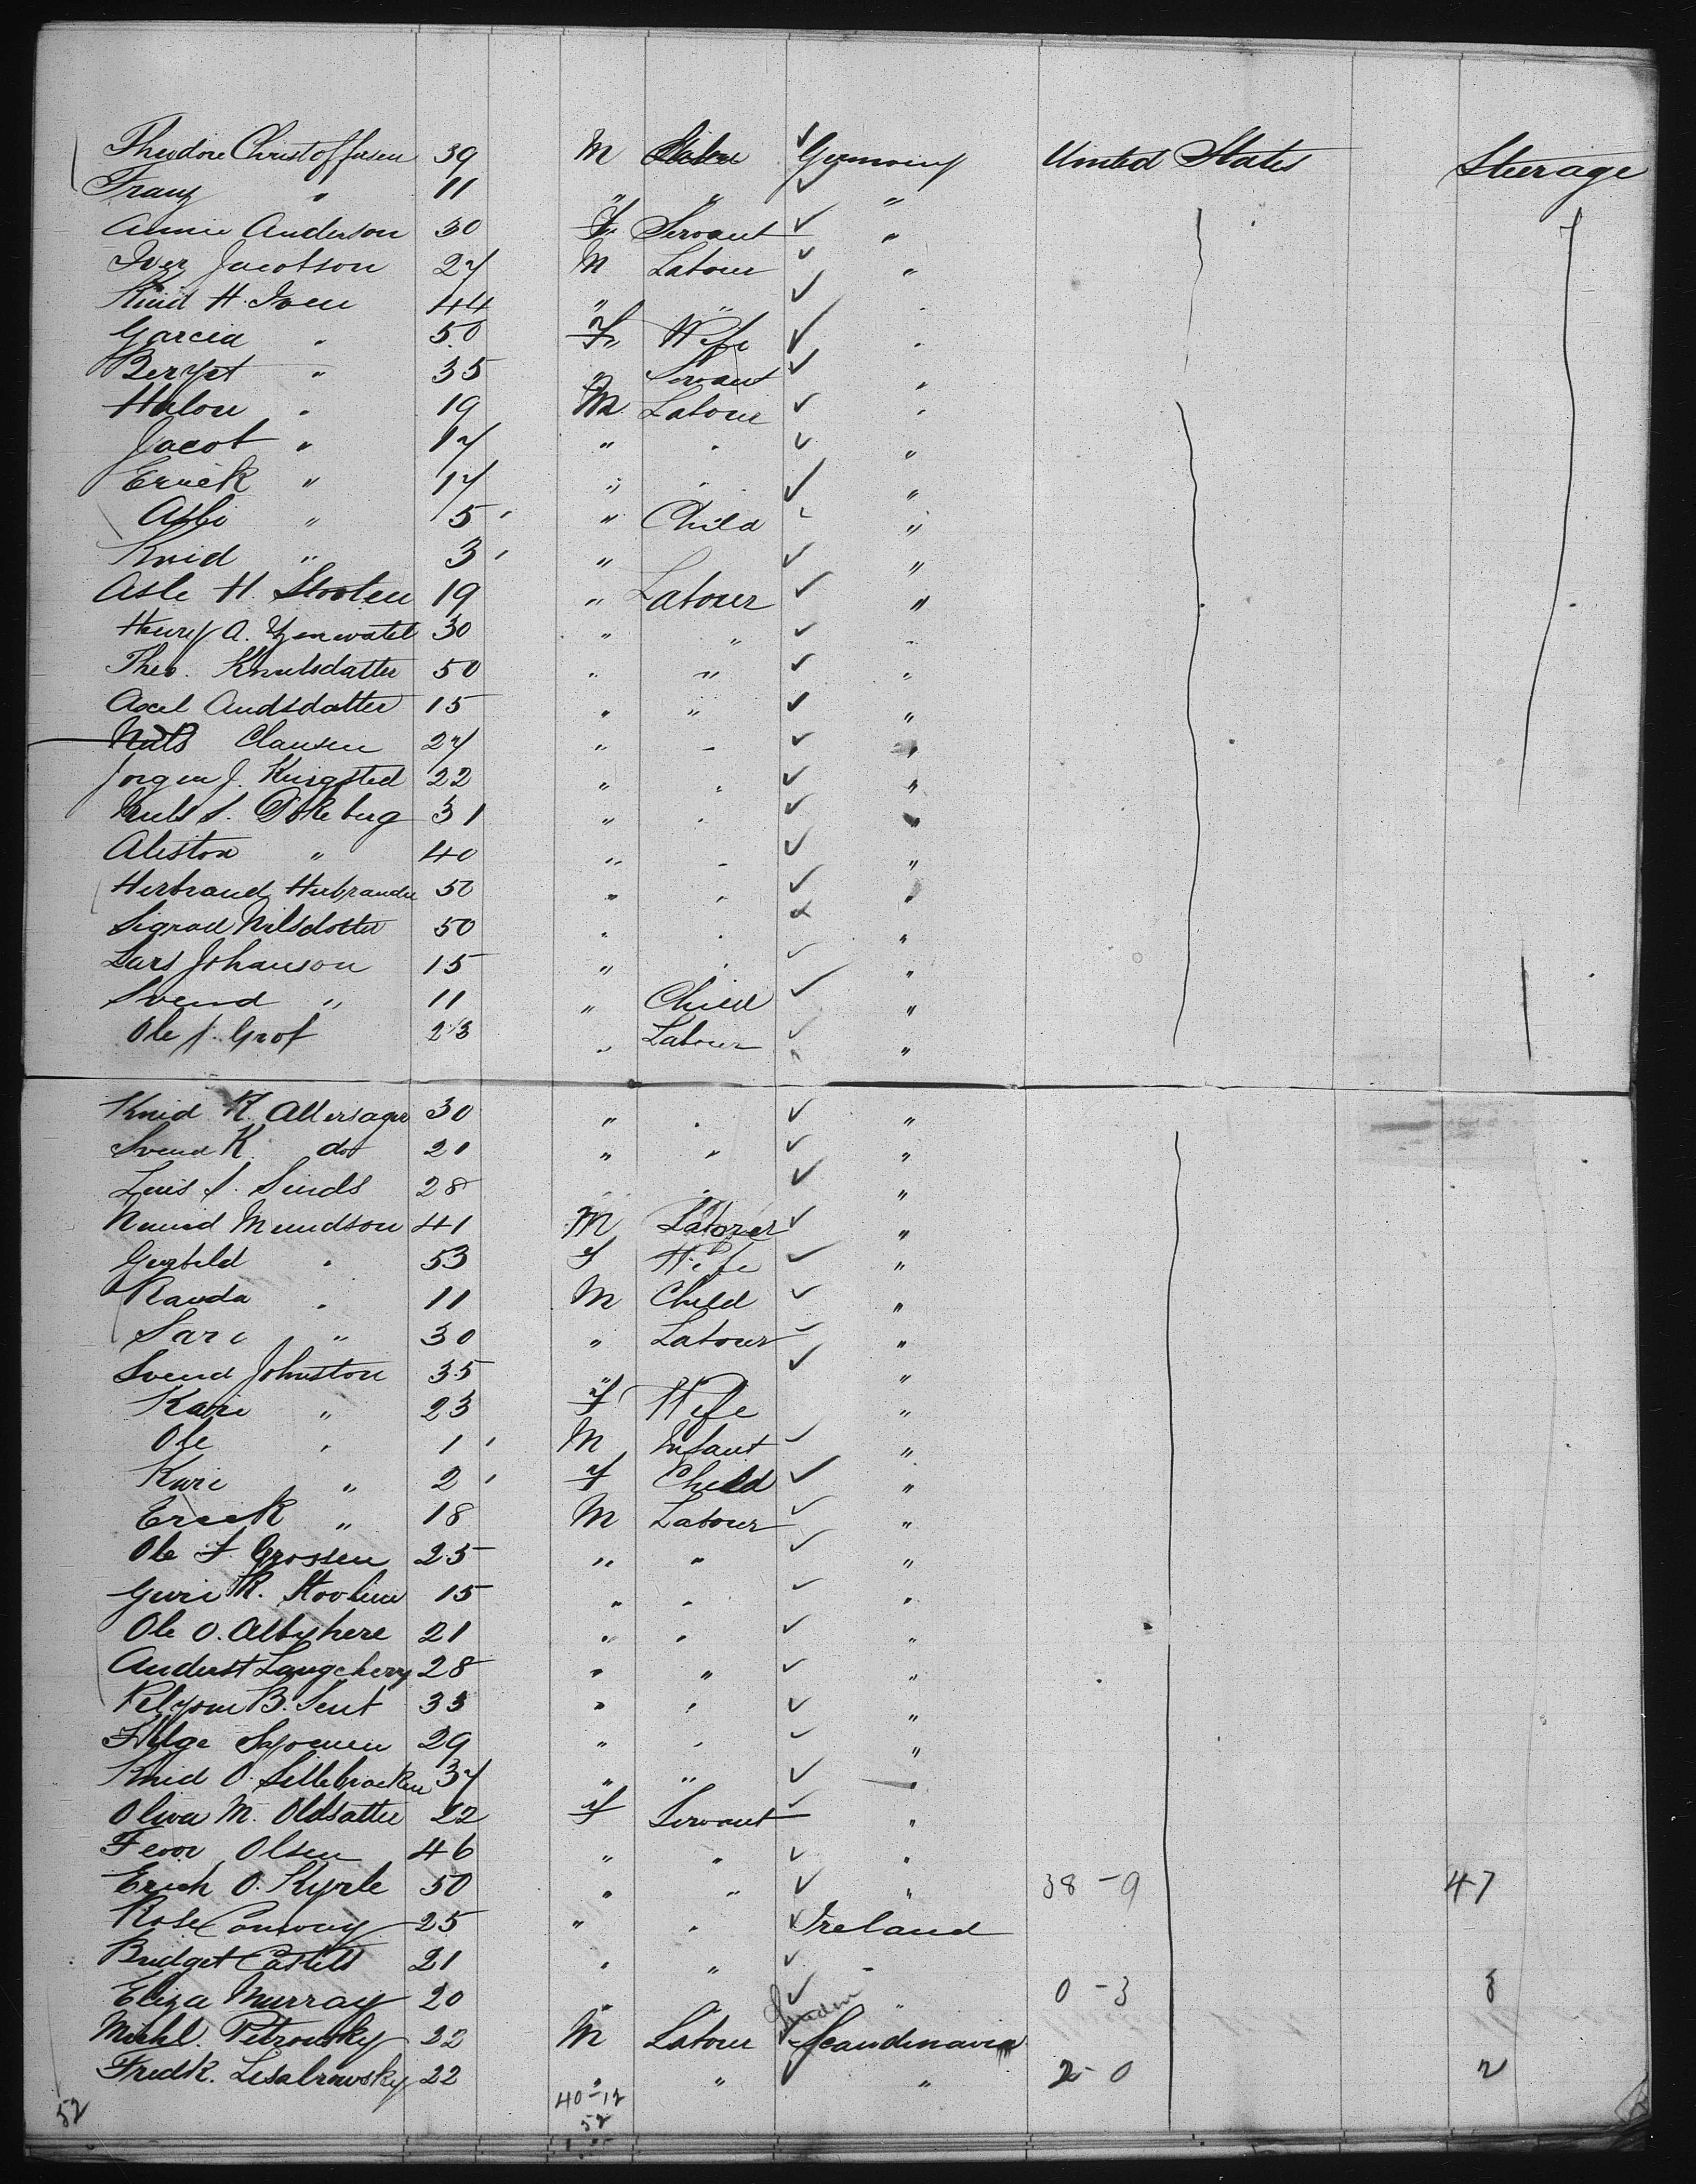 Theodore Christoffersen 39 M Germany United States Steerage
Franz " 11 " " "
Annie Anderson 30 F Servant "
Iver Jacobson 27 M Labour "
Knid H. Iven 44 " " "
Garcia " 50 F Wife "
Bergot " 35 " Servant "
Halou " 19 M Labour "
Jacob " 17 " " "
Erick " 17 " " "
Asli " 5 " Child "
Knid " 3 " "
Asle H. Stoolen 19 " Labour "
Henry A. 30 " " "
Theo. Knutsdatter 50 " " "
Axel Audsdatter 15 " " "
Nals Clausen 27 " " "
Jorgen J. Kuigsted 22 " " "
S. Okeberg 31 " " "
Aliston " 40 " " "
Herbrand Herbrander 50 " " "
Sigrad Nilsdotter 50 " " "
Lars Johanson 15 " " "
Svend " 11 " Child "
Ole J. Grof 23 " Labour "
Knid K. Allersager 30 " " "
Svend K. do 21 " " "
Luis S. Sinds 28 " " "
Mundson 41 M Labourer "
Gunbild " 53 F Wife "
Randa " 11 M Child "
Sari " 30 " Labour "
Svend Johnston 35 " "
Kari " 23 F Wife "
Ole " 1 M Infant "
Kari " 2 F Child "
Erick " 18 M Labour "
Ole F. Grossen 25 " " "
Guri K. Stoolien 15 " " "
Ole O. Albyhere 21 " " "
Anderst Langehery 28 " " "
B. Sent 33 " " "
Helge Syomen 29 " " "
Knid O. Sillebraoken 37 " " "
Oliva M. Oldsatter 22 F Servant "
Olsen 46 " " "
Erick O. Kyrle 50 " " " 38-9 47
Rose Conway 25 " " Ireland
Bridget Castells 21 " " "
Eliza Murray 20 " " 0-3 3
Sweden
Michl. Petrowsky 22 M Labour Scandinavia
Fredk. Lesabrowsky 22 " " " 2-0 2
40-12
52 52